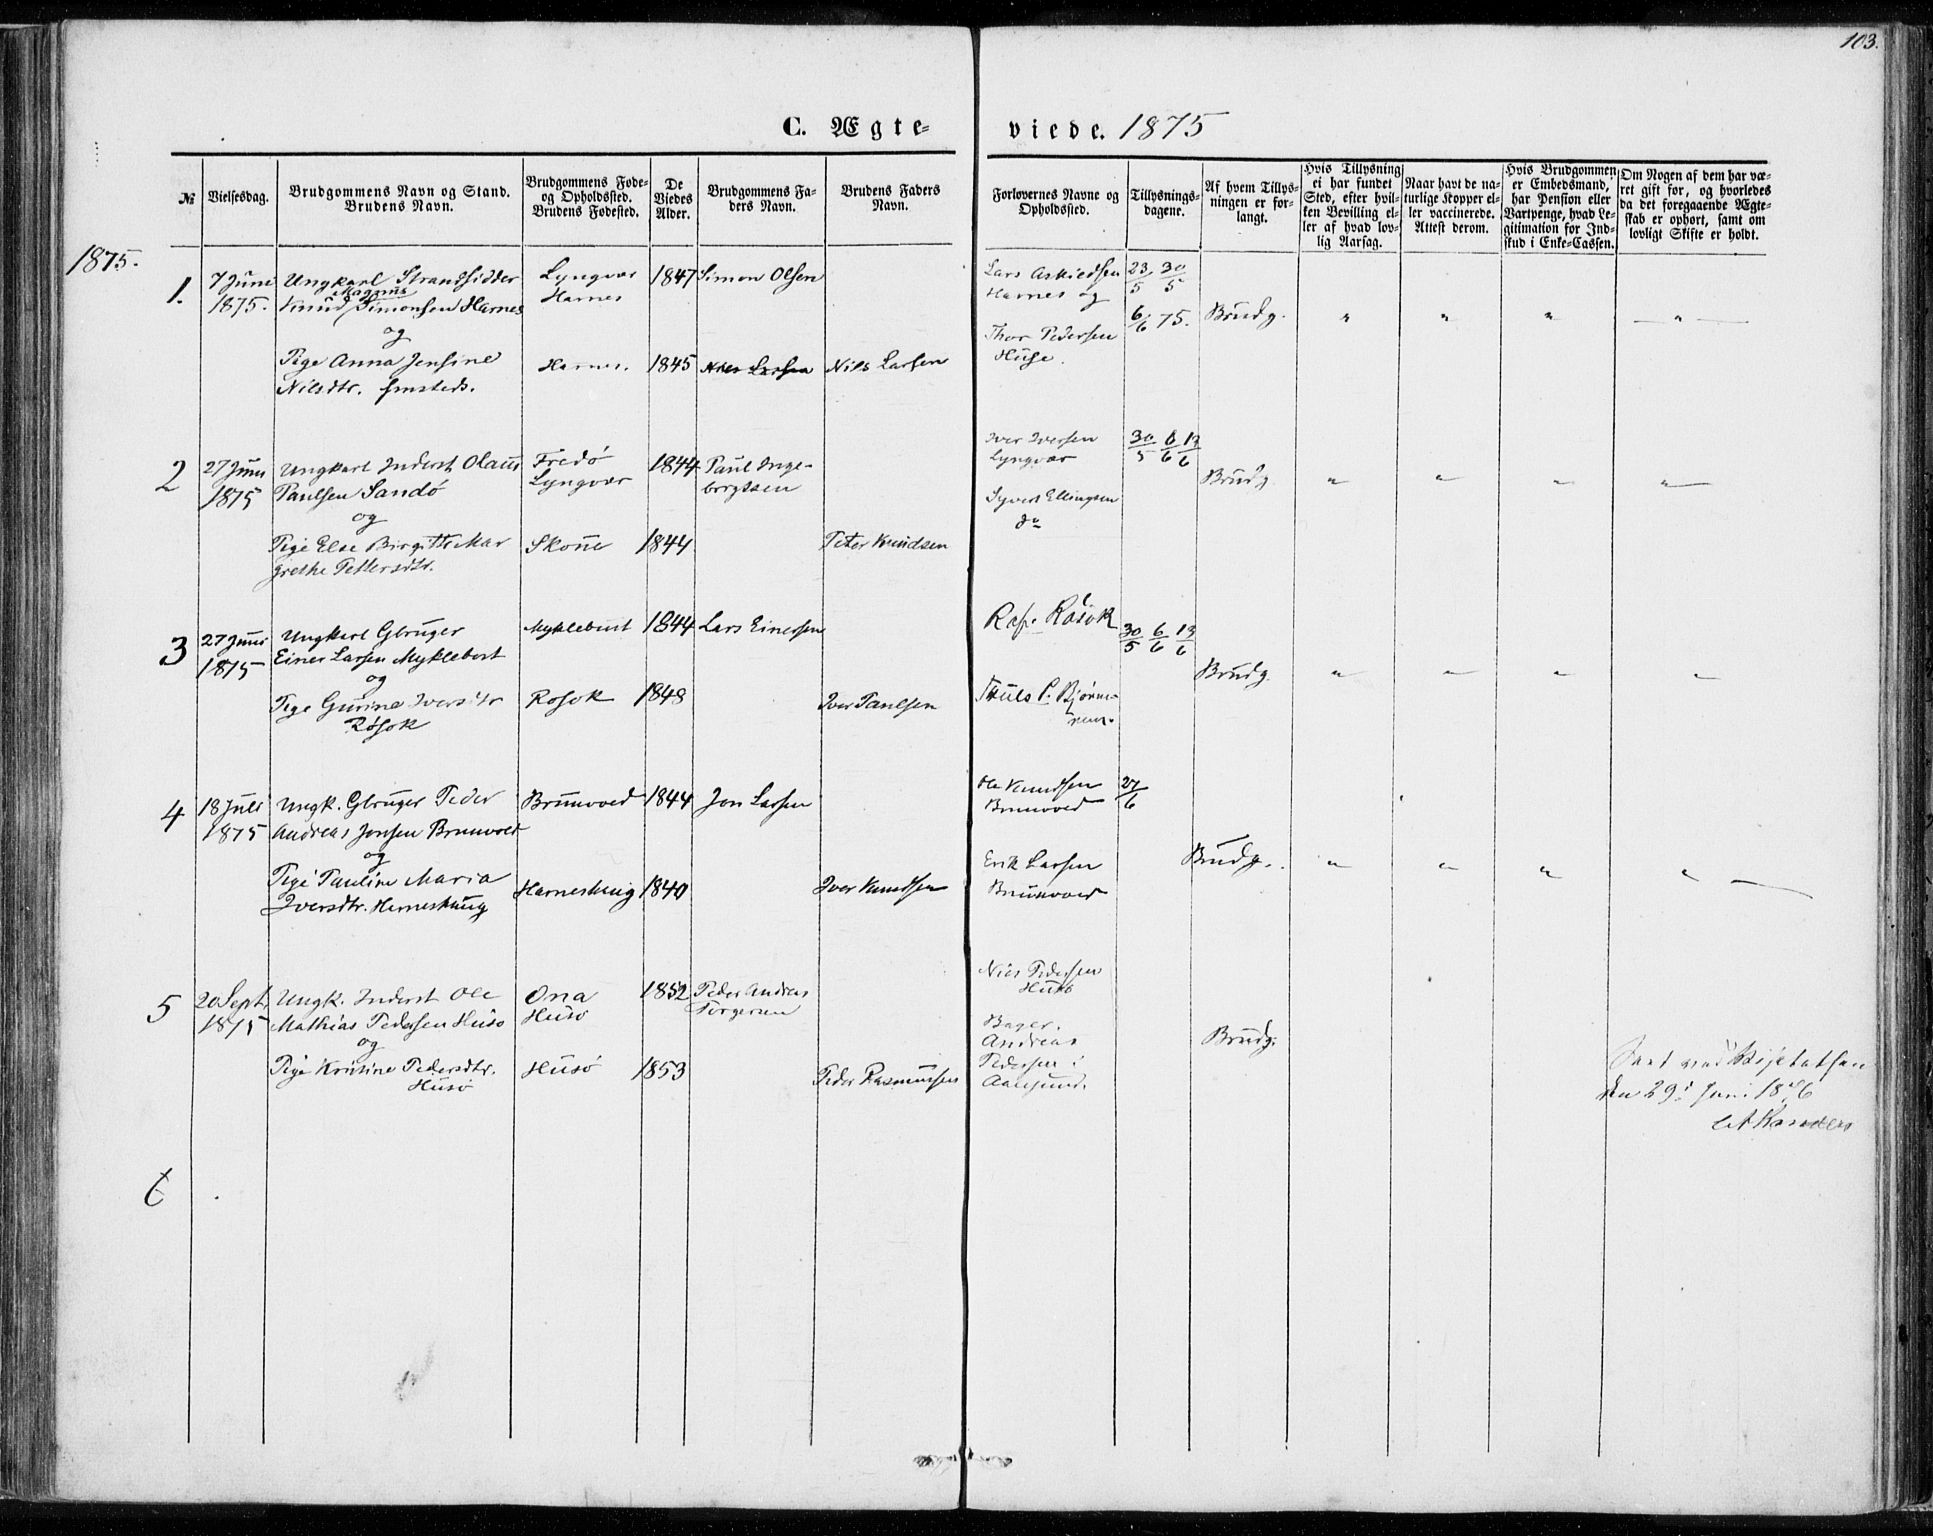 103.
C. Ægte-
viede. 1875
№
Vielsesdag.
Brudgommens Navn og Stand.
Brudens Navn.
Brudgommens Føde-
og Opholdssted.
Brudens Fødested.
De
Viedes
Alder.
Brudgommens Fa-
ders Navn.
Brudens Faders
Navn.
Forlovernes Navne og
Opholdssted.
Tillysnings-
dagene.
Af hvem Tillys-
ningen er for-
langt.
Hvis Tillysning
ei har fundet
Sted, efter hvil-
ken Bevilling el-
ler af hvad lov-
lig Aarsag.
Naar havt de na-
turlige Kopper el-
ler vaccinerede.
Attest derom.
Hvis Brudgommen
er Embedsmand,
har Pension eller
Vartpenge, hvad Le-
gitimation for Ind-
skud i Enke-Cassen.
Om Nogen af dem har væ-
ret gift før, og hvorledes
da det foregaaende Ægte-
skab er ophørt, samt om
lovligt Skifte er holdt.
1875.
1.
7 Juni
1875.
Ungkarl Strandsidder
Magnus
Knud Simonsen Harnes
og
Pige Anna Jensine
Nilsdtr.
Lyngvær
Harnes
Harnes.
1847
1845
Simon Olsen
Nils Larsen
Nils Larsen
Lars
Harnes og
Thor Pedersen
Huse.
23/5 30/5
6/6 75.
Brudg. " " " "
2
27 Juni
1875
Ungkarl Inderst Olaus
Paulsen Sandø
og
Pige Else Birgitte Mar
grethe Pettersdtr.
Fredø
Lyngvær
1844
1844
Paul Inge-
brigtsen
Peter Knudsen
Iver Iversen
Lyngvær
Syvert Ellingsen
do
30/5 6/6 13/6
Brudg. " " " "
3
27 Juni
1875
Ungkarl Gbruger
Einer Larsen Myklebost
og
Pige Gurine Iversdtr
Røsok
Myklebust
Rosok
1844
1848
Lars Einersen
Iver Paulsen
Røsok
P. Bjørne-
30/5 6/6 13/6
Brudg. " " " "
4
18 Juli
1875
Ungk. Gbruger Peder
Andreas Jonsen Brunvoed
og
Pige Pauline Maria
Iversdtr. Harneshaug
Brunvoed
Harneshaug
1844
1840
Jon Larsen
Iver Knudsen
Ole Knudsen
Brunvoed
Erik Larsen
Brunvoed
27/6
Brudg. " " " "
5
20 Sept.
1875
Ungk. Inderst Ole
Mathias Pedersen Husø
og
Pige Kristine Pedersdtr.
Husø
Ona
Husø
Husø
1852
1853
Peder Andreas
Torgersen
Peder Rasmussen
Nils Pedersen
Husø
Bager.
Andreas
Pedersen
Aalesund.
Brudg.
Seet ved
den 29 Juni 1876
6